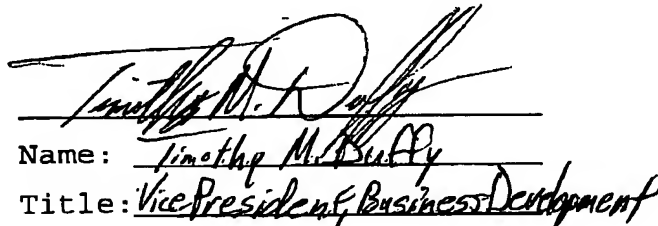 Timothy M. Duffy
Name: Timothy M. Duffy
Title: Vice President, Business Development